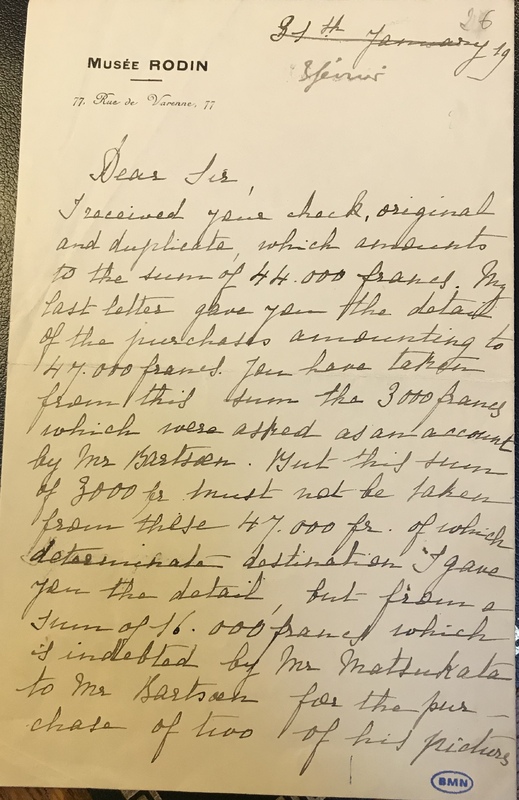 26
31th January 19
MUSÉE RODIN
3 février
77, Rue de Varenne, 77
Dear Sir,
I received your check, original
and duplicate, which amounts
to the sum of 44.000 francs. My
last letter gave you the detail
of the purchases amounting to
47.000 francs. You have taken
from this sum the 3000 francs
which were asked as an account
by Mr Bartsoen. But this sum
of 3000 fr must not be taken
from these 47.000 fr. of which
determinate destination I gave
you the detail, but from a
sum of 16.000 francs which
is indebted by Mr Matsukata
to Mr Bartsoen for the pur-
chase of two of his pictures
BMN